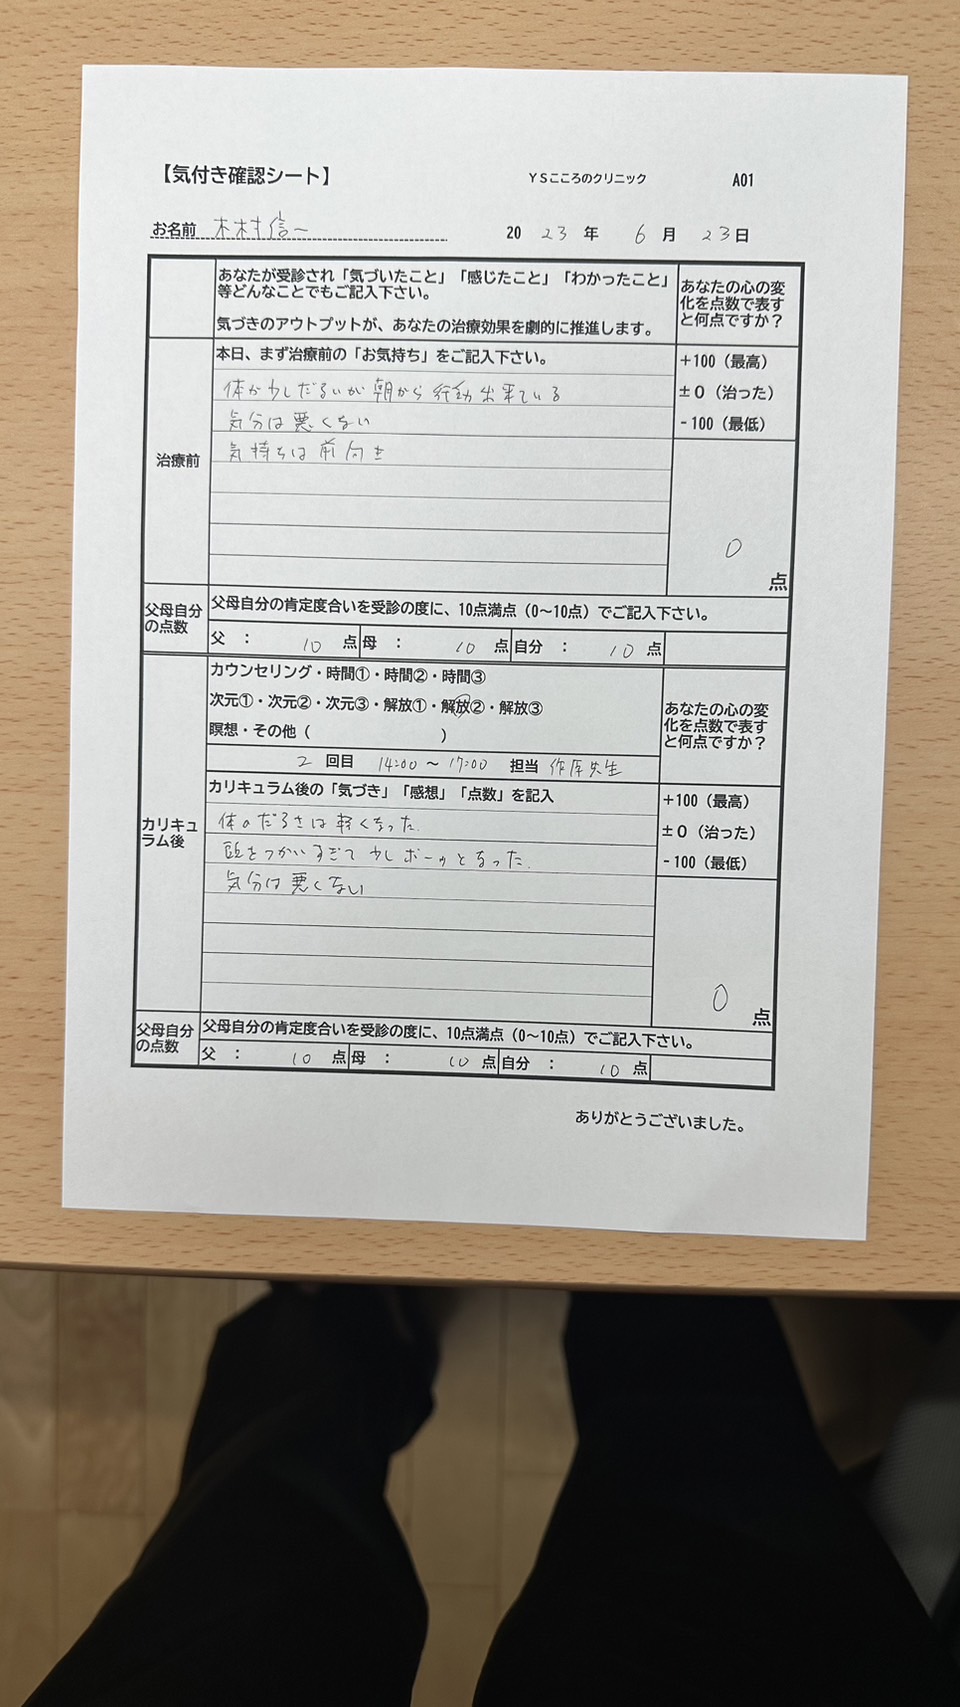 【気付き確認シート】 YSこころのクリニック A01
お名前 木村信一 2023年 6月 23日
あなたが受診され「気づいたこと」「感じたこと」「わかったこと」
等どんなことでもご記入下さい。
気づきのアウトプットが、あなたの治療効果を劇的に推進します。
あなたの心の変
化を点数で表す
と何点ですか？
治療前
本日、まず治療前の「お気持ち」をご記入下さい。
体が少しだるいが朝から行動出来ている
気分は悪くない
気持ちは前向き
+100（最高）
±0（治った）
-100（最低）
0 点
父母自分
の点数
父母自分の肯定度合いを受診の度に、10点満点（0〜10点）でご記入下さい。
父 ： 10 点 母 ： 10 点 自分 ： 10 点
カリキュ
ラム後
カウンセリング・時間①・時間②・時間③
次元①・次元②・次元③・解放①・解放②・解放③
瞑想・その他（ ）
2 回目 14:00 〜 17:00 担当 先生
あなたの心の変
化を点数で表す
と何点ですか？
カリキュラム後の「気づき」「感想」「点数」を記入
体のだるさは軽くなった.
頭をつかいすぎて少しボーッとなった.
気分は悪くない
+100（最高）
±0（治った）
-100（最低）
0 点
父母自分
の点数
父母自分の肯定度合いを受診の度に、10点満点（0〜10点）でご記入下さい。
父 ： 10 点 母 ： 10 点 自分 ： 10 点
ありがとうございました。